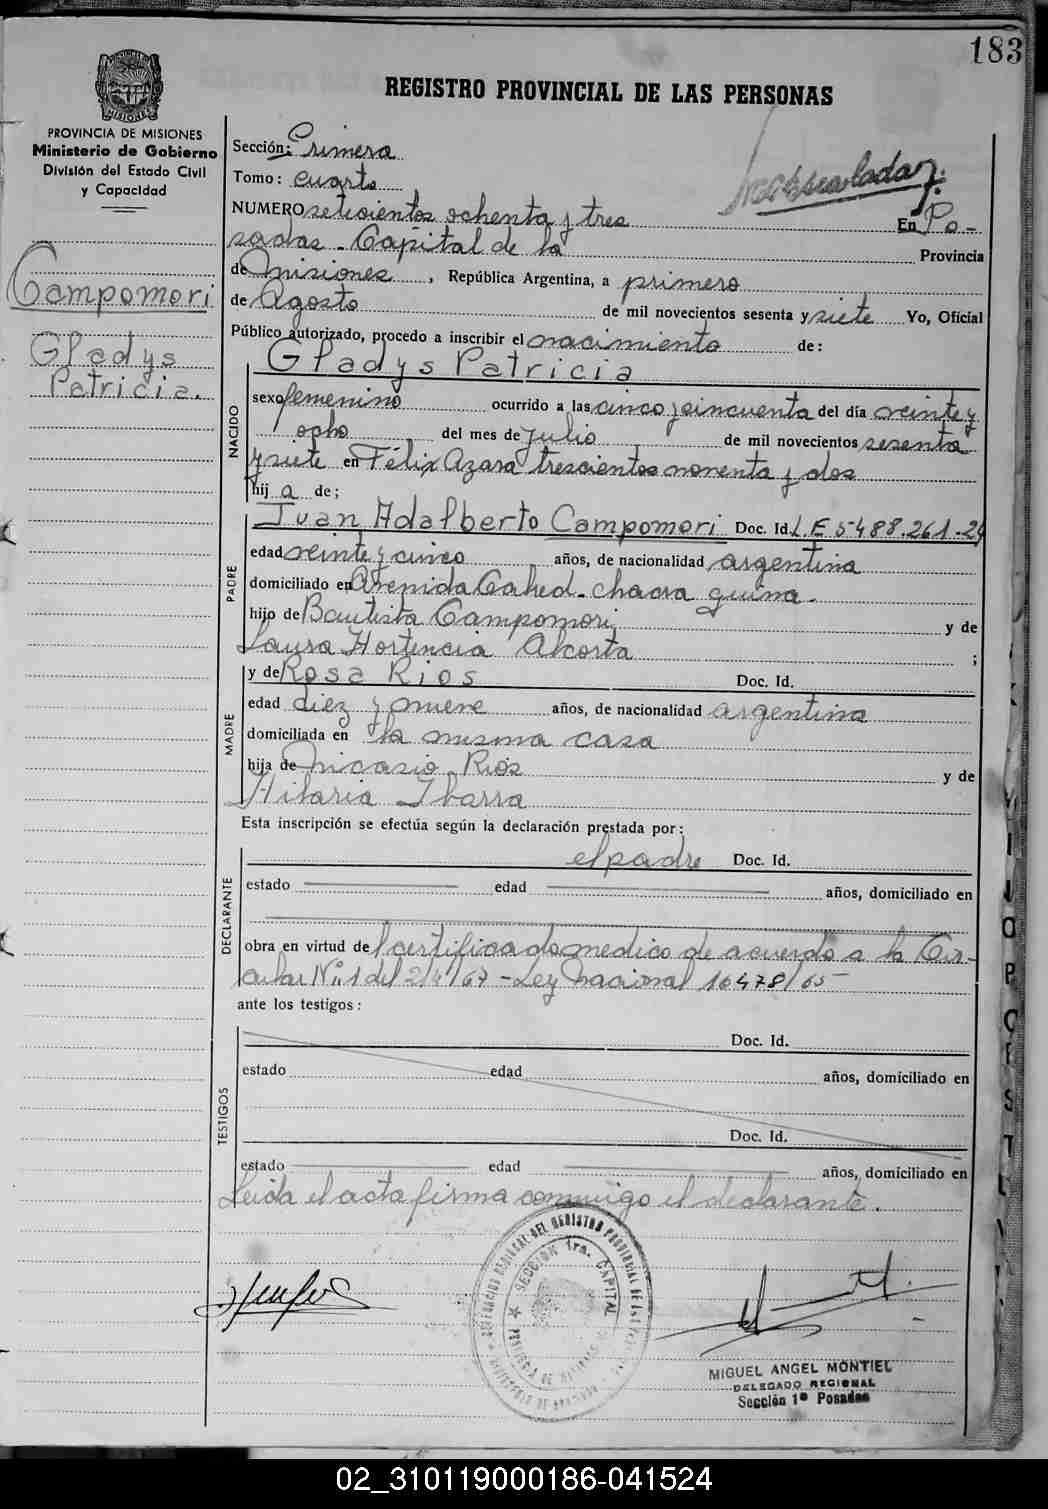 183
REGISTRO PROVINCIAL DE LAS PERSONAS
PROVINCIA DE MISIONES
Ministerio de Gobierno
División del Estado Civil
y Capacidad
Campomori
Gladys
Patricia.
Sección: Primera
Tomo: cuarto
NUMERO setecientos ochenta y tres En Po-
sadas - Capital de la Provincia
de Misiones, República Argentina, a primero
de Agosto de mil novecientos sesenta y siete Yo, Oficial
Público autorizado, procedo a inscribir el nacimiento de:
NACIDO
Gladys Patricia
sexo femenino ocurrido a las cinco y cincuenta del día veinte y
ocho del mes de Julio de mil novecientos sesenta
y siete en Félix Azara trescientos noventa y dos
hij a de;
PADRE
Juan Adalberto Campomori Doc. Id. L.E 5488.261-
edad veinte y cinco años, de nacionalidad argentina
domiciliado en Avenida chacra
hijo de Bautista Campomori y de
Laura Hortencia Alcorta ;
MADRE
y de Rosa Rios Doc. Id.
edad diez y nueve años, de nacionalidad argentina
domiciliada en la misma casa
hija de Nicasio Ríos y de
Hilaria Ibarra
Esta inscripción se efectúa según la declaración prestada por:
DECLARANTE
el padre Doc. Id.
estado edad años, domiciliado en
obra en virtud del certificado medico de acuerdo a la Cir-
cular Nº 1 del 2/4/67 - Ley Nacional 16478/65
ante los testigos:
TESTIGOS
Doc. Id.
estado edad años, domiciliado en
Doc. Id.
estado edad años, domiciliado en
Leída el acta firma conmigo el declarante.
SECCION 1ra. CAPITAL
MIGUEL ANGEL MONTIEL
DELEGADO REGIONAL
Sección 1ª Posadas
02_310119000186-041524